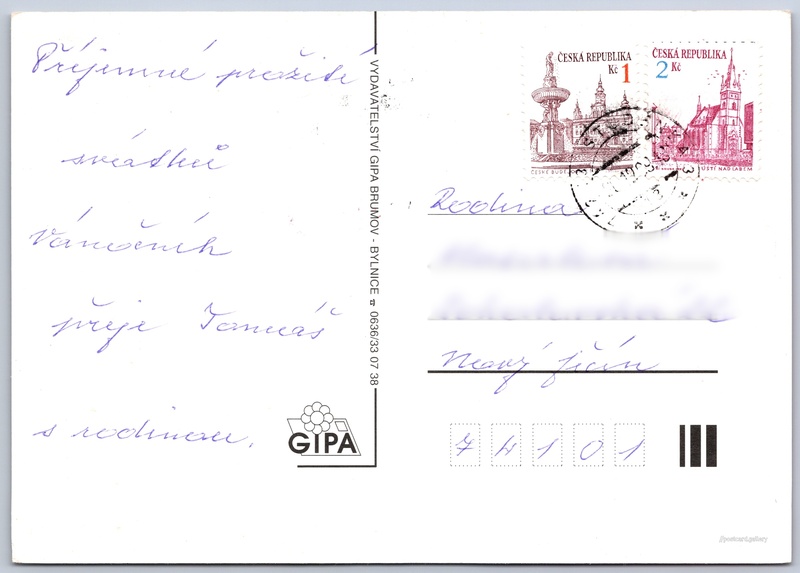 Příjemné prožití
svátků
Vánočních
přeje Tomáš
s rodinou.
VYDAVATELSTVÍ GIPA BRUMOV - BYLNICE ☎ 0636/33 07 38
GIPA
ČESKÁ REPUBLIKA
Kč 1
ČESKÉ BUDĚ
ČESKÁ REPUBLIKA
2 Kč
ÚSTÍ NAD LABEM
Rodina
Nový Jičín
74101
postcard.gallery